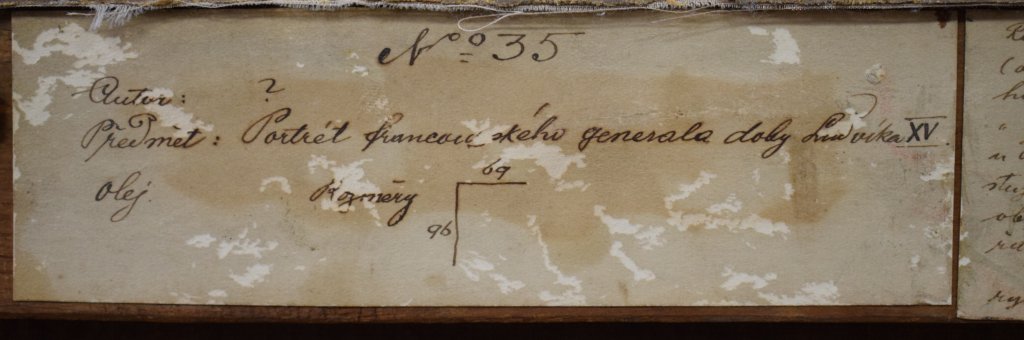 Nº 35
Autor: ?
Předmět: Portrét francouzského generala doby Ludvíka XV.
olej. Rozměry 69
96